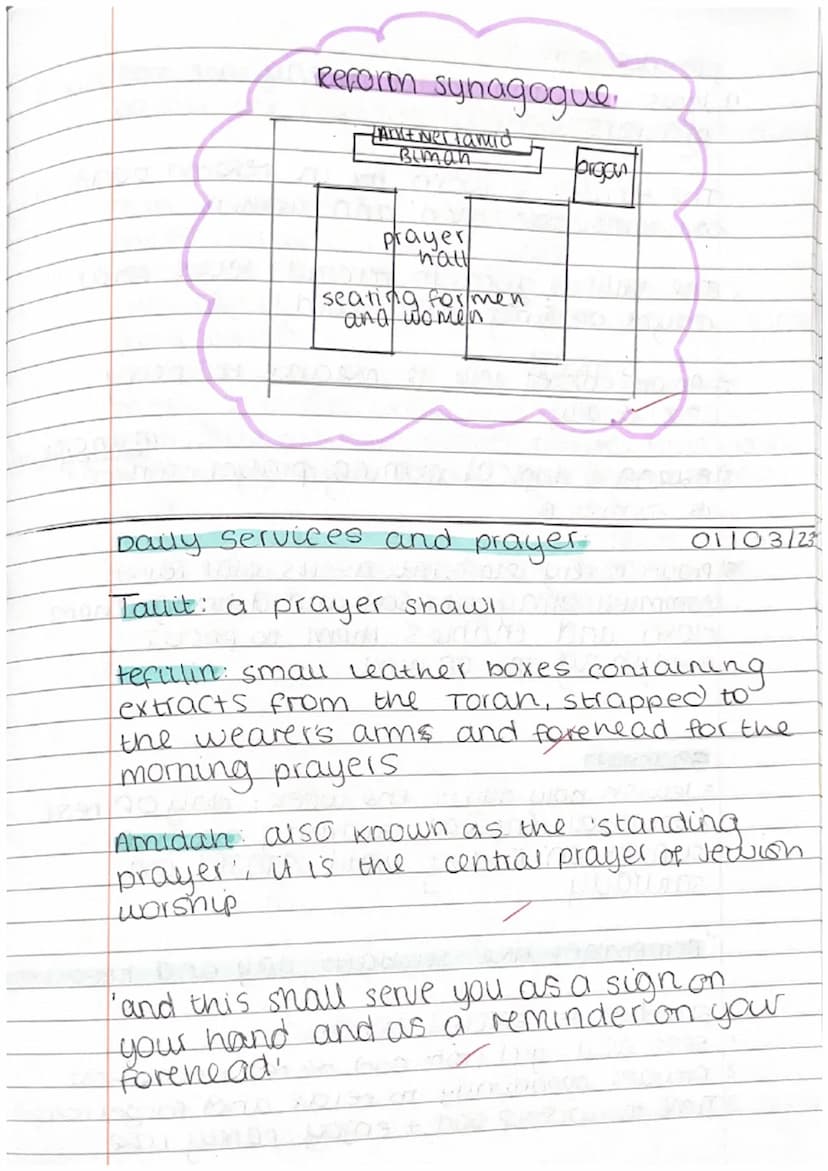 Reform synagogue.
Ark+Ner tamid
Bimah
organ
prayer
hall
seating for men
and women
Daily services and prayer. 01/03/23
Tallit: a prayer shawl
tefillin: small leather boxes containing
extracts from the Torah, strapped to
the wearer's arms and forehead for the
morning prayers
Amidah: also known as the 'standing
prayer', it is the central prayer of Jewish
worship
'and this shall serve you as a sign on
your hand and as a reminder on your
forehead'